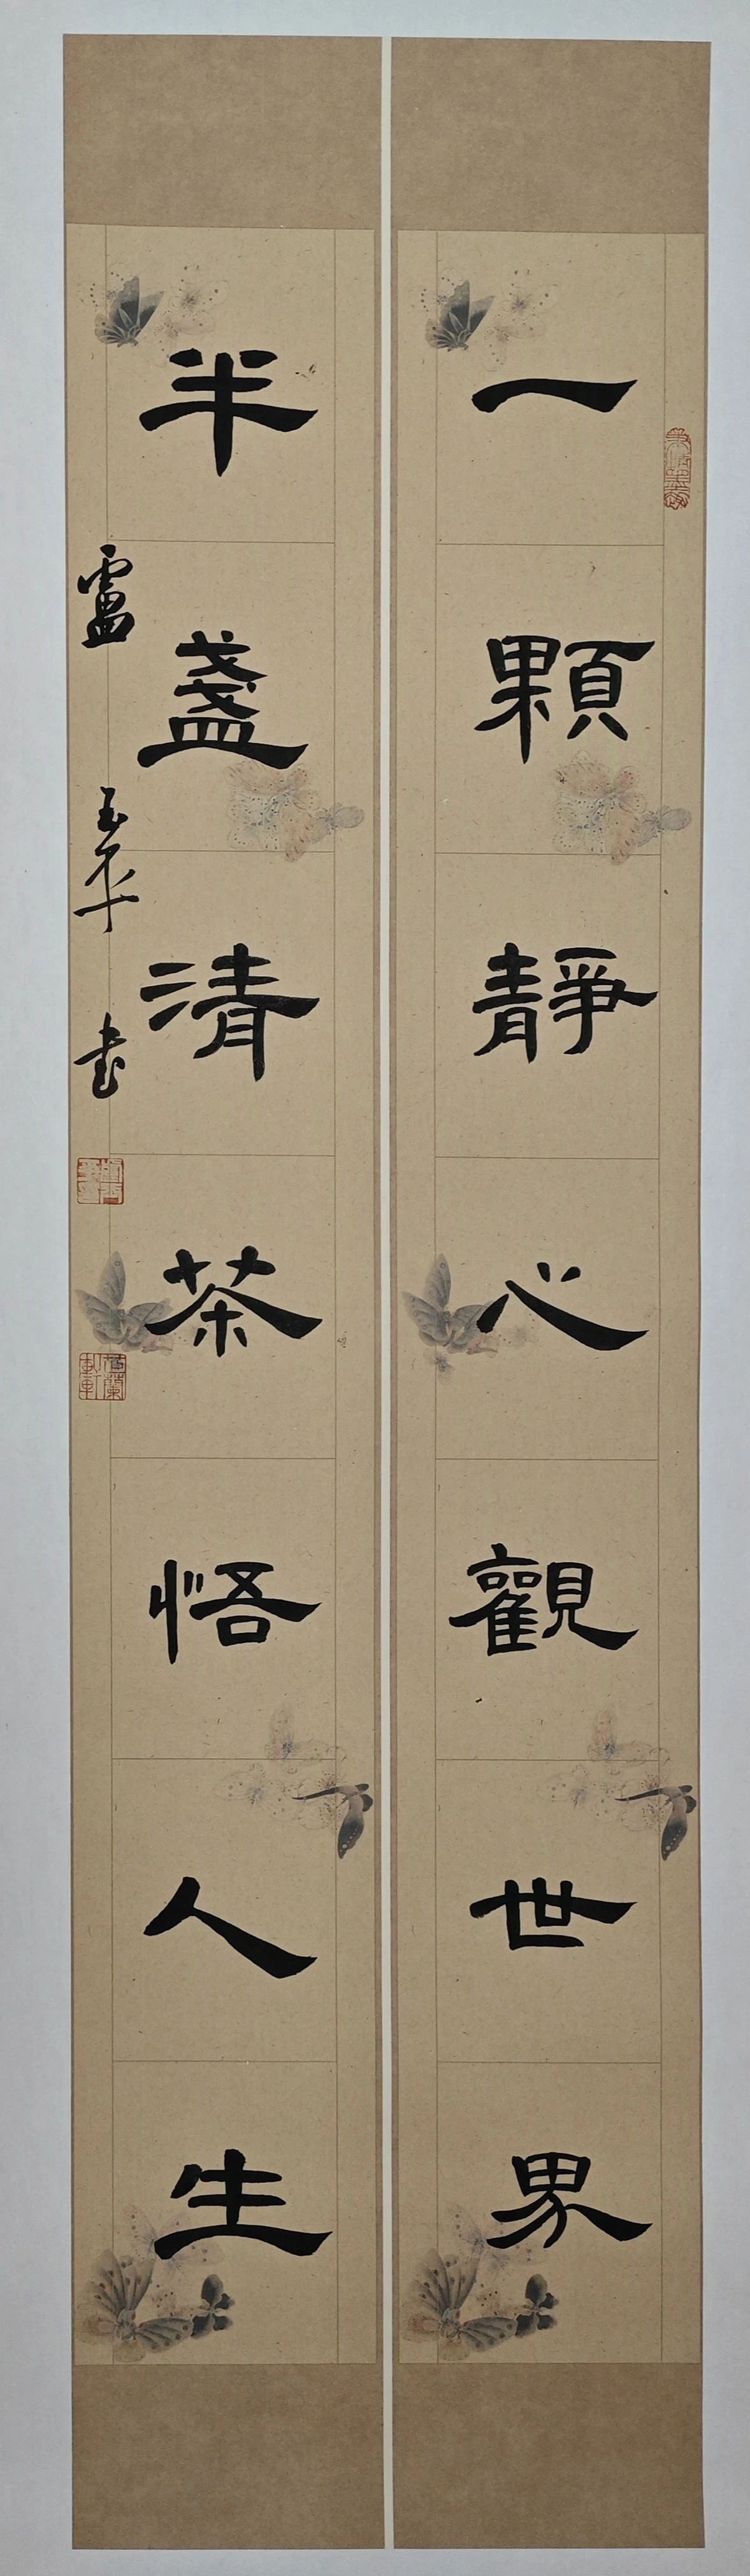 一顆靜心觀世界
半盞清茶悟人生
盧玉平書